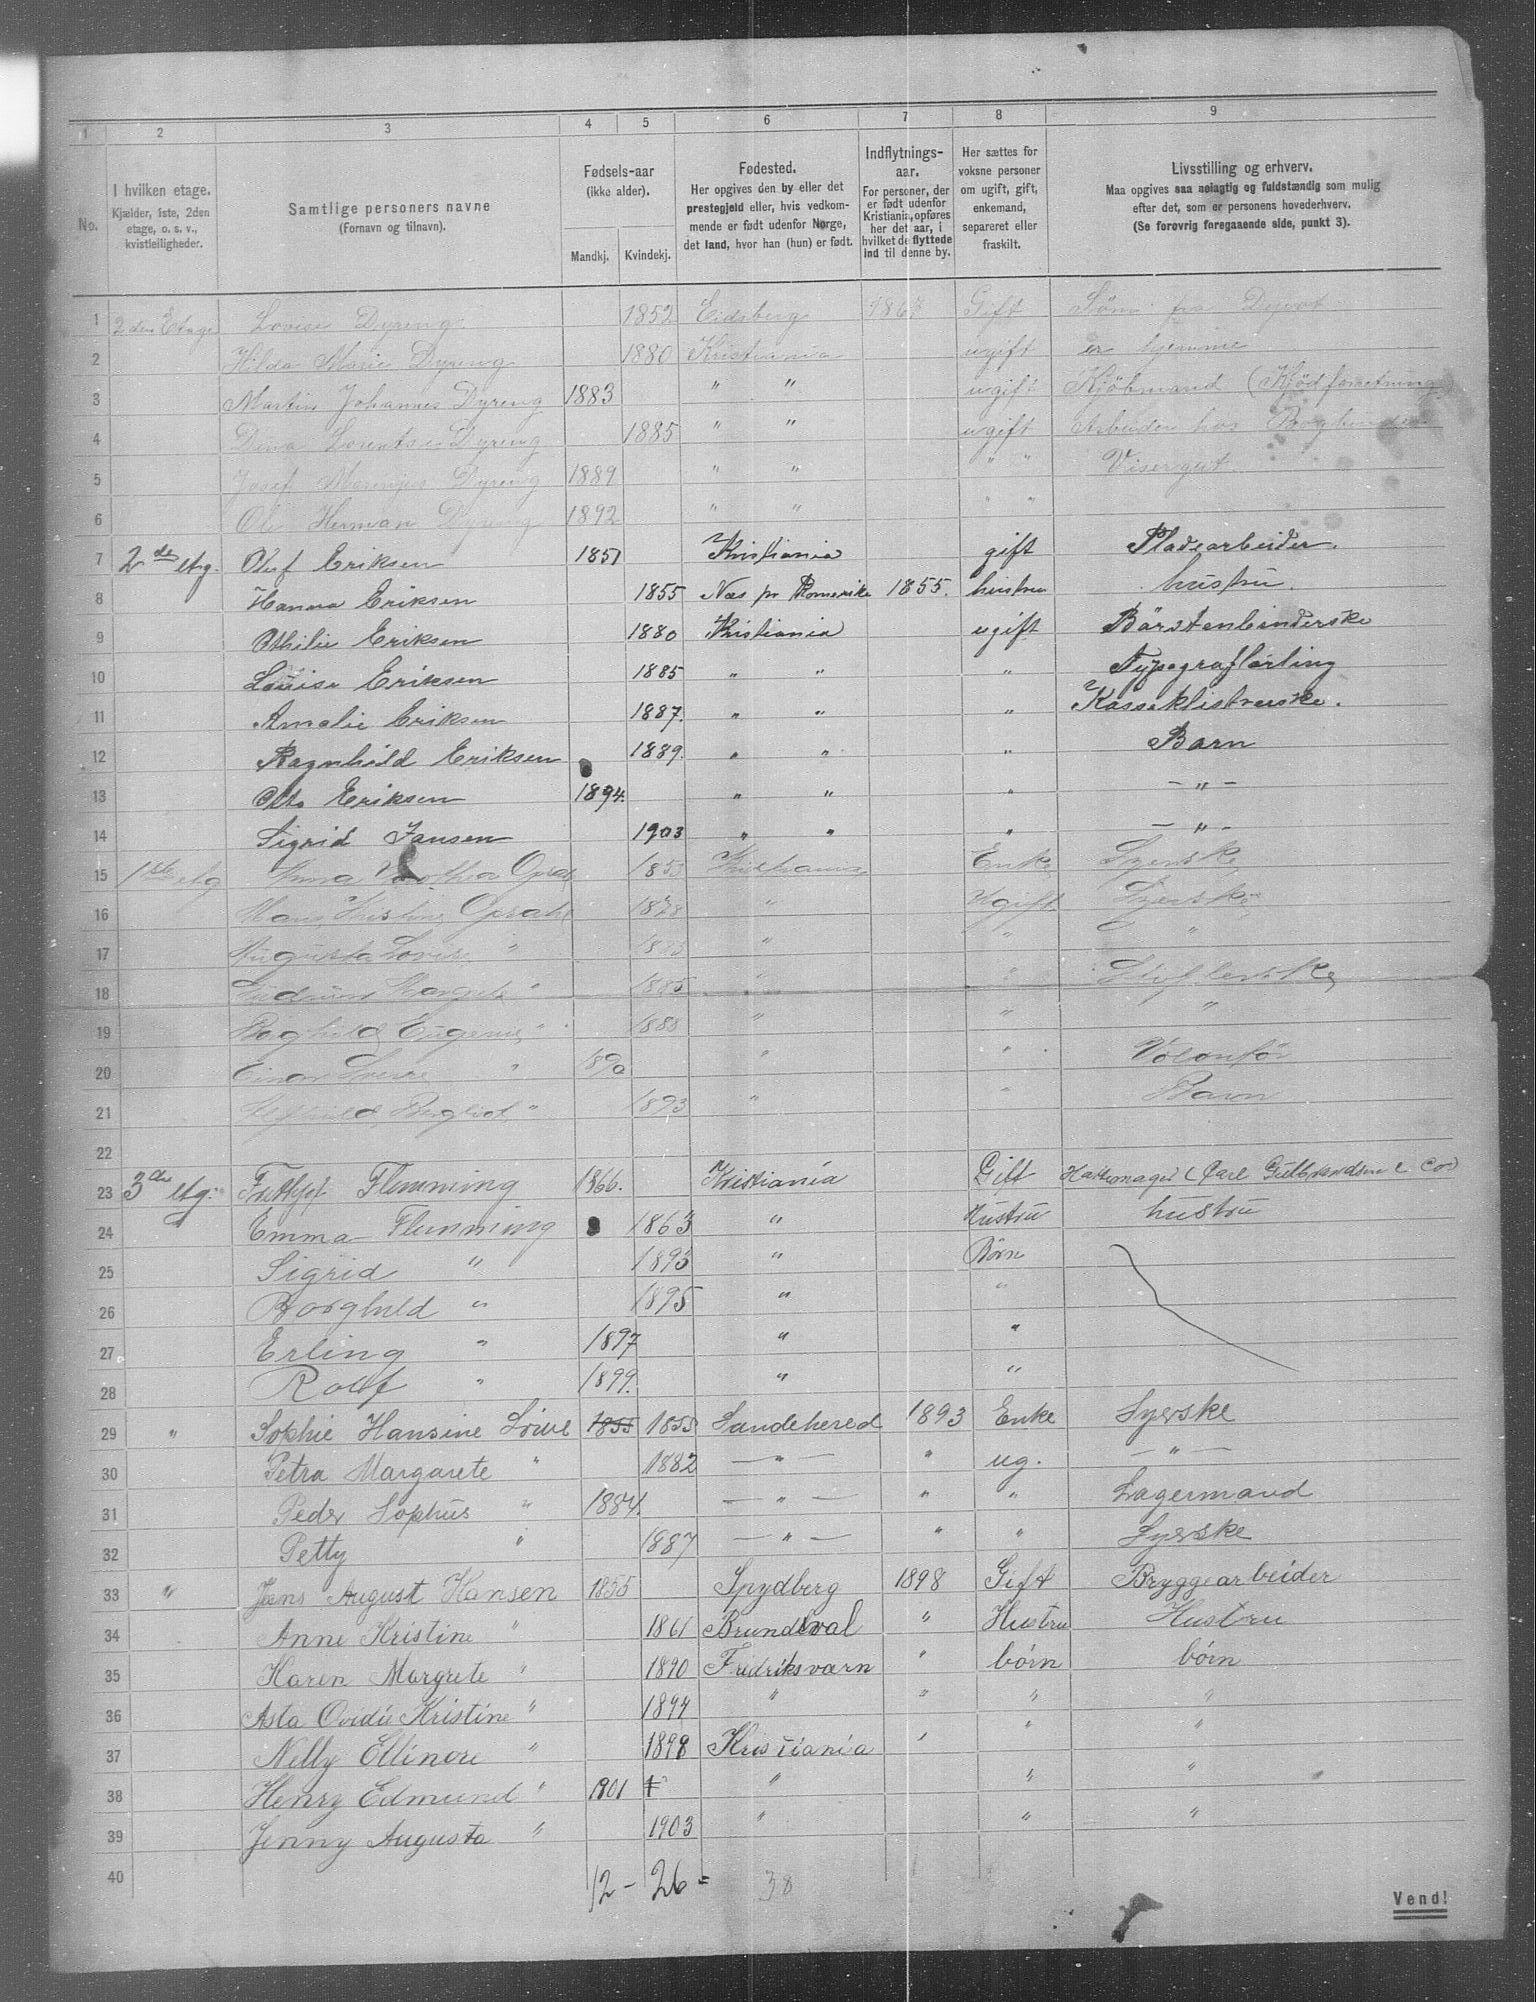 1 2 3 4 5 6 7 8 9
No.
I hvilken etage.
Kjælder, 1ste, 2den
etage, o. s. v.,
kvistleiligheder.
Samtlige personers navne
(Fornavn og tilnavn).
Fødsels-aar
(ikke alder).
Mandkj. Kvindekj.
Fødested.
Her opgives den by eller det
prestegjeld eller, hvis vedkom-
mende er født udenfor Norge,
det land, hvor han (hun) er født.
Indflytnings-
aar.
For personer, der
er født udenfor
Kristiania, opføres
her det aar, i
hvilket de flyttede
ind til denne by.
Her sættes for
voksne personer
om ugift, gift,
enkemand,
separeret eller
fraskilt.
Livsstilling og erhverv.
Maa opgives saa nøiagtig og fuldstændig som mulig
efter det, som er personens hovederhverv.
(Se forøvrig foregaaende side, punkt 3).
1 2den Etage Lovise Dyreng 1852 Eidsberg 1867 Gift
2 Hilda Marie Dyreng 1880 Kristiania ugift er hjemme
3 Martin Johannes Dyreng 1883 " " ugift Kjöbmand (Kjödforretning)
4 Dina Lorentse Dyreng 1885 " " ugift Arbeider hos Bogbinder
5 Josef Dyreng 1889 " " " " Visergut
6 Ole Herman Dyreng 1892 " " " "
7 2de etg. Oluf Eriksen 1851 Kristiania gift Pladearbeider.
8 Hanna Eriksen 1855 Næs pr Romerike 1855. hustru hustru.
9 Othilie Eriksen 1880 Kristiania ugift Börstenbinderske
10 Louise Eriksen 1885 " " " Typograflærling
11 Amalie Eriksen 1887. " " " Kasseklistrerske.
12 Ragnhild Eriksen 1889. " " " Barn
13 Otto Eriksen 1894. " " " — " —
14 Sigrid Jansen 1903 " " " — " —
15 1ste etg Anna 1853 Kristiania Enke Syerske
16 Kristine 1878 " Ugift Syerske
17 Augusta Lovise " 1883 " " "
18 " 1885 " "
19 Eugenie " 1888 " " "
20 Einar " 1890 " " Volontør
21 " 1893 " " Barn
22
23 3die etg. Frithjof Flemming 1866. Kristiania Gift Hattemager (Carl Gulbrandsen & Co)
24 Emma Flemming 1863 " Hustru hustru
25 Sigrid " 1893 " Børn
26 Borghild " 1895 " "
27 Erling " 1897 " "
28 Rolf " 1899. " "
29 " Sophie Hansine 1855 1855 Sandehered 1893 Enke Syerske
30 Petra Margarete " 1882 — " — " ug. — " —
31 Peder Sophus " 1884. — " — " " Lagermand
32 Petty " 1887 — " — " " Syerske
33 " Jens August Hansen 1855 Spydberg 1898 Gift Bryggearbeider
34 Anne Kristine " 1861 " Hustru Hustru
35 Karen Margrete " 1890 Fredriksværn " børn børn
36 Asta Kristine " 1894 " " " "
37 Nelly Ellinore " 1898 Kristiania " " "
38 Henry Edmund " 1901 " " "
39 Jenny Augusta " 1903 " " "
40 12 - 26 = 38
Vend!